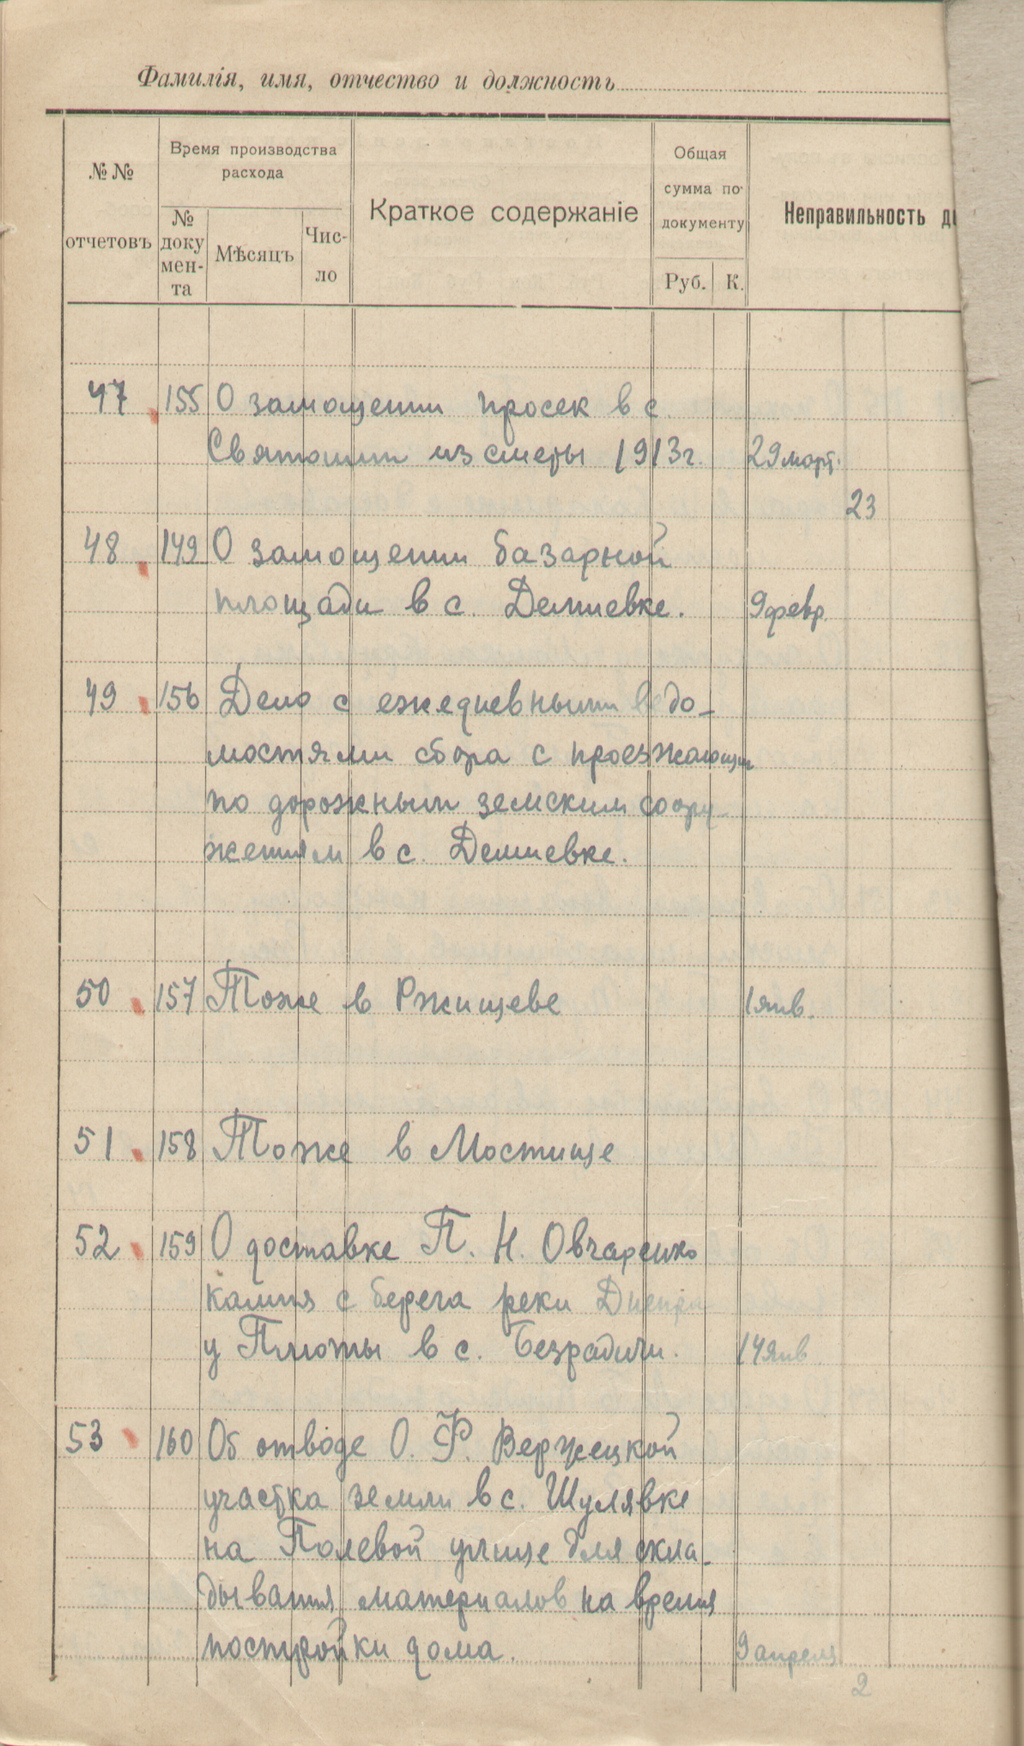 Фамилія, имя, отчество и должность
№№ отчетовъ
Время производства расхода
№ доку мен- та
Мѣсяцъ
Чис- ло
Краткое содержаніе
Общая сумма по документу
Руб. К.
Неправильность
47 155 О замощении просек в с
Святошин из сметы 1913г. 29 март.
23
48 149 О замощении базарной
площади в с. Демиевке. 9 февр.
49 156 Дело с ежедневными ведо-
мостями сбора с проезжающих
по дорожным земским соору-
жениям в с. Демиевке.
50 157 Тоже в Ржищеве 1 янв.
51 158 Тоже в Мостище
52 159 О доставке П. Н. Овчаренко
камня с берега реки Днепра
у Плюты в с. Безрадичи. 14 янв
53 160 Об отводе О. Ф. Вержецкой
участка земли в с. Шулявке
на Полевой улице для скла-
дывания материалов на время
постройки дома. 9 апреля
2